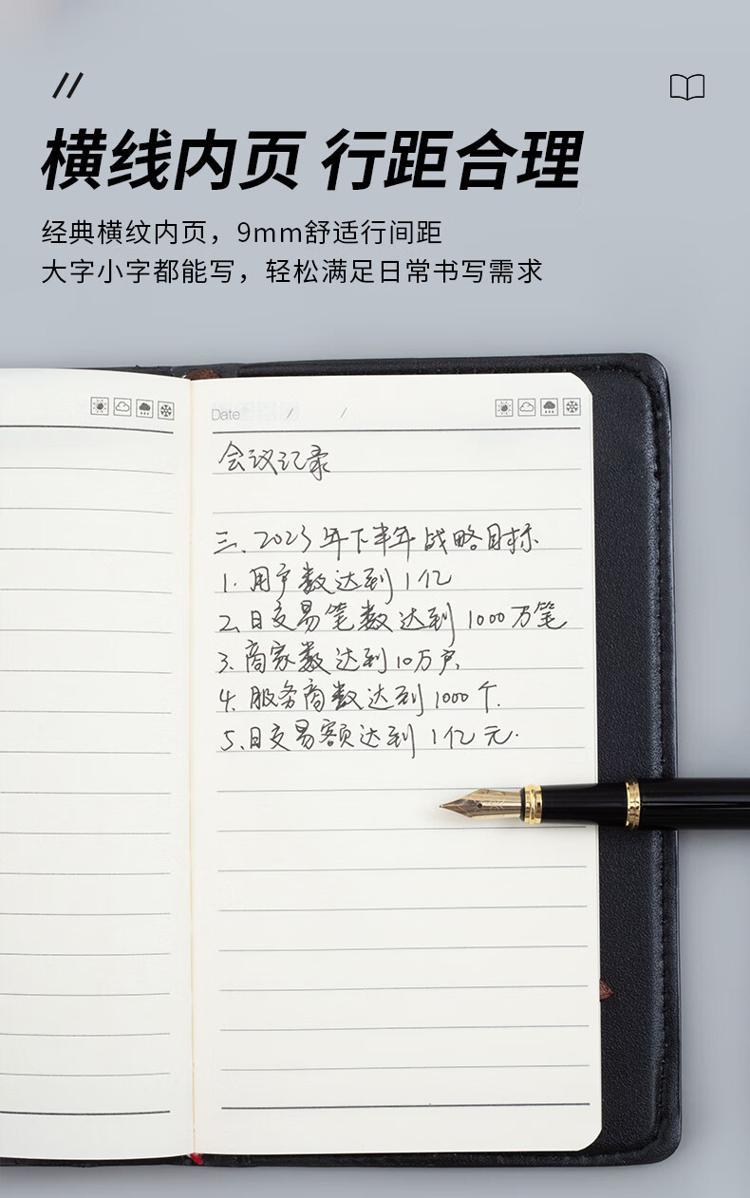 //
横线内页 行距合理
经典横纹内页，9mm舒适行间距
大字小字都能写，轻松满足日常书写需求
Date / /
会议记录
三、2023年下半年战略目标
1. 用户数达到1亿
2.日交易笔数达到1000万笔
3.商家数达到10万户.
4.服务商数达到1000个.
5.日交易额达到1亿元.